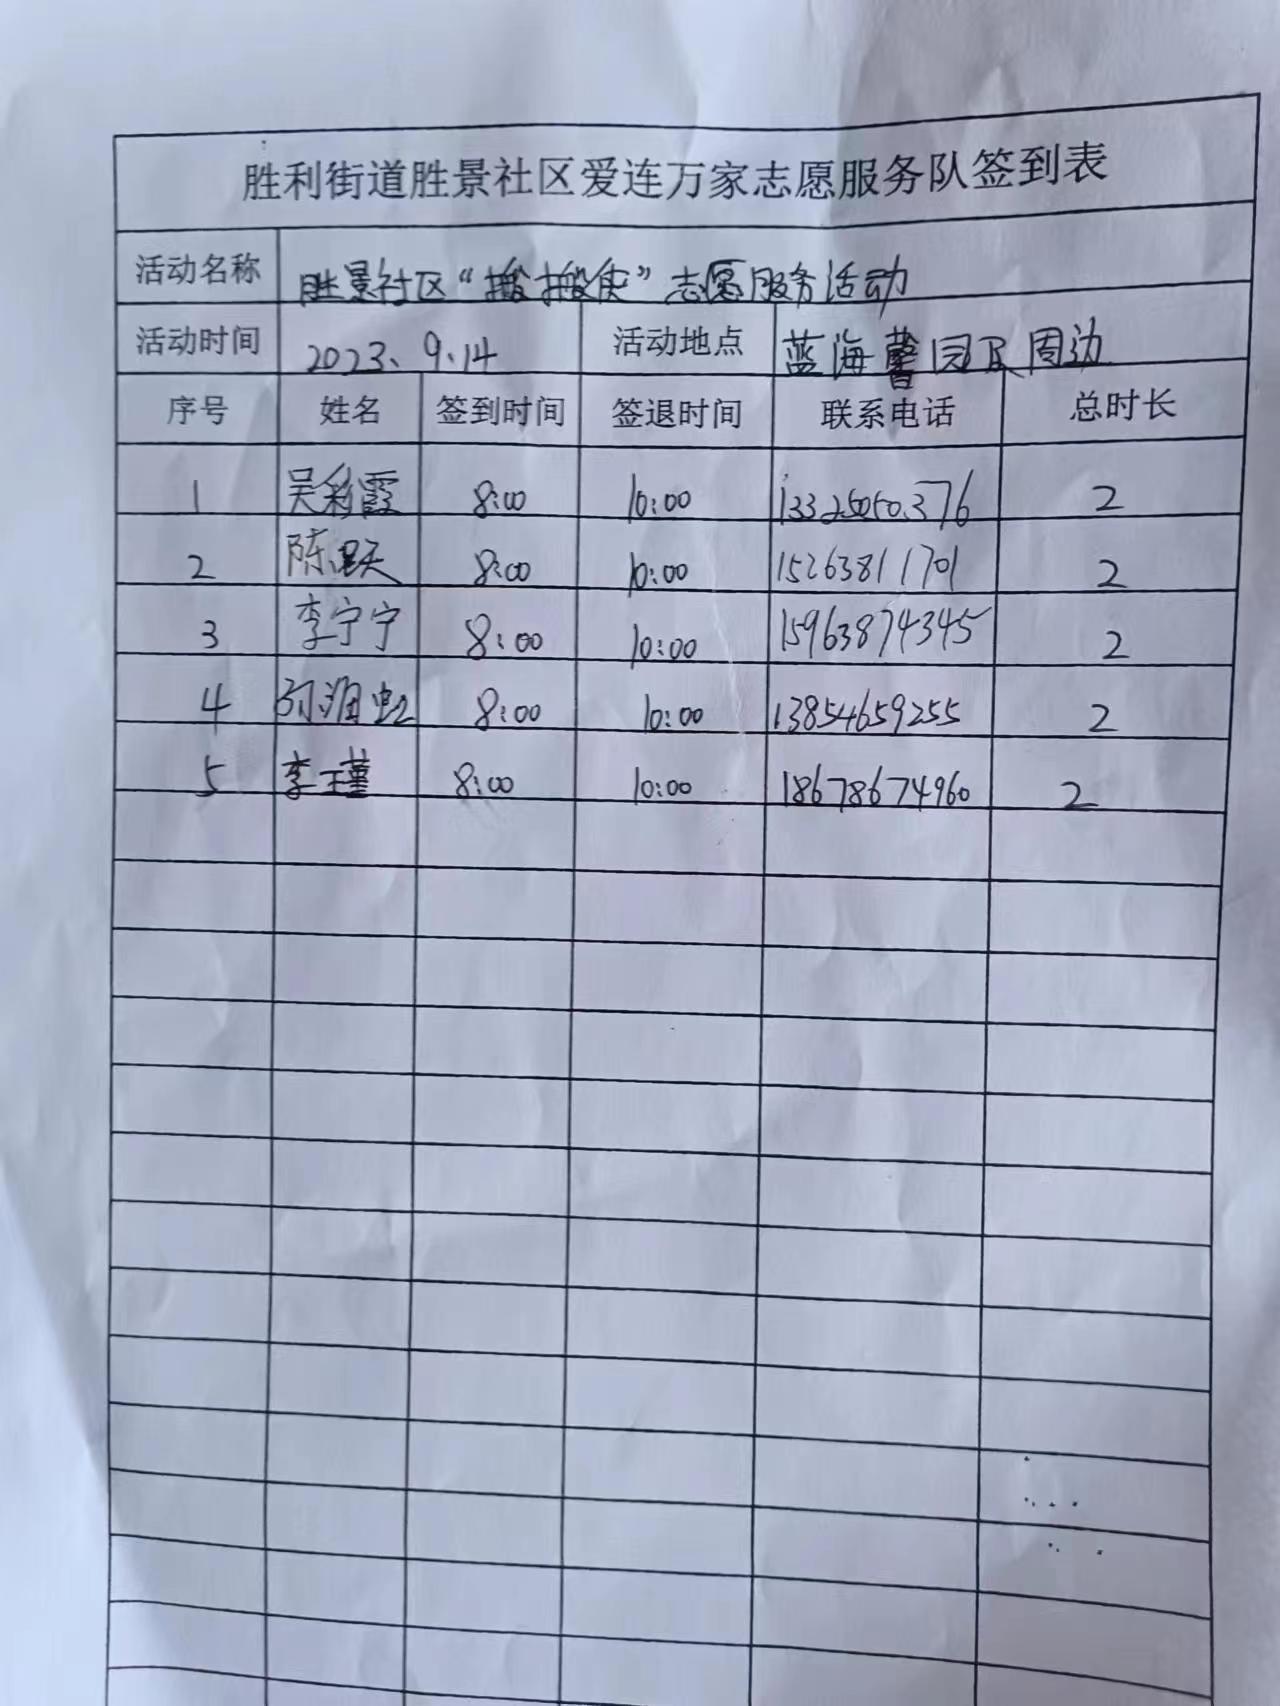 胜利街道胜景社区爱连万家志愿服务队签到表
活动名称 胜景社区“搬搬侠”志愿服务活动
活动时间 2023、9.14 活动地点 蓝海馨园及周边
序号 姓名 签到时间 签退时间 联系电话 总时长
1 吴彩霞 8:00 10:00 2
2 陈 8:00 10:00 15263811701 2
3 李宁宁 8:00 10:00 15963874345 2
4 8:00 10:00 13854659255 2
5 李瑾 8:00 10:00 18678674960 2